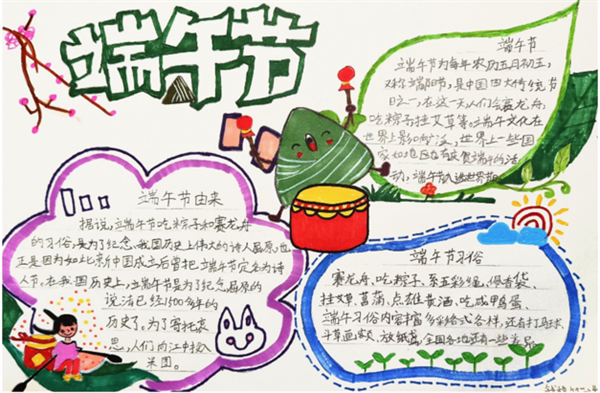 端午节
端午节
端午节为每年农历五月初五,
又称端阳节,是中国四大传统节
日之一,在这一天人们会赛龙舟、
吃粽子挂艾草等,端午文化在
世界上影响广泛,世界上一些国
家和地区也有庆贺端午的活
动,端午节入选世界
端午节由来
据说,端午节吃粽子和赛龙舟
的习俗,是为了纪念我国历史上伟大的诗人屈原,也
正是因为如此新中国成立后曾把端午节定名为诗
人节。在我国历史上,端午节是为了纪念屈原的
说法已经1500多年的
历史了,为了寄托哀
思,人们向江中投入
米团。
端午节习俗
赛龙舟、吃粽子、系五彩绳、佩香袋、
挂艾草、菖蒲、点雄黄酒、吃咸鸭蛋、
端午习俗内容丰富多彩格式各样,还有打马球、
斗草画额、放纸鸢,全国各地还有一些差异。